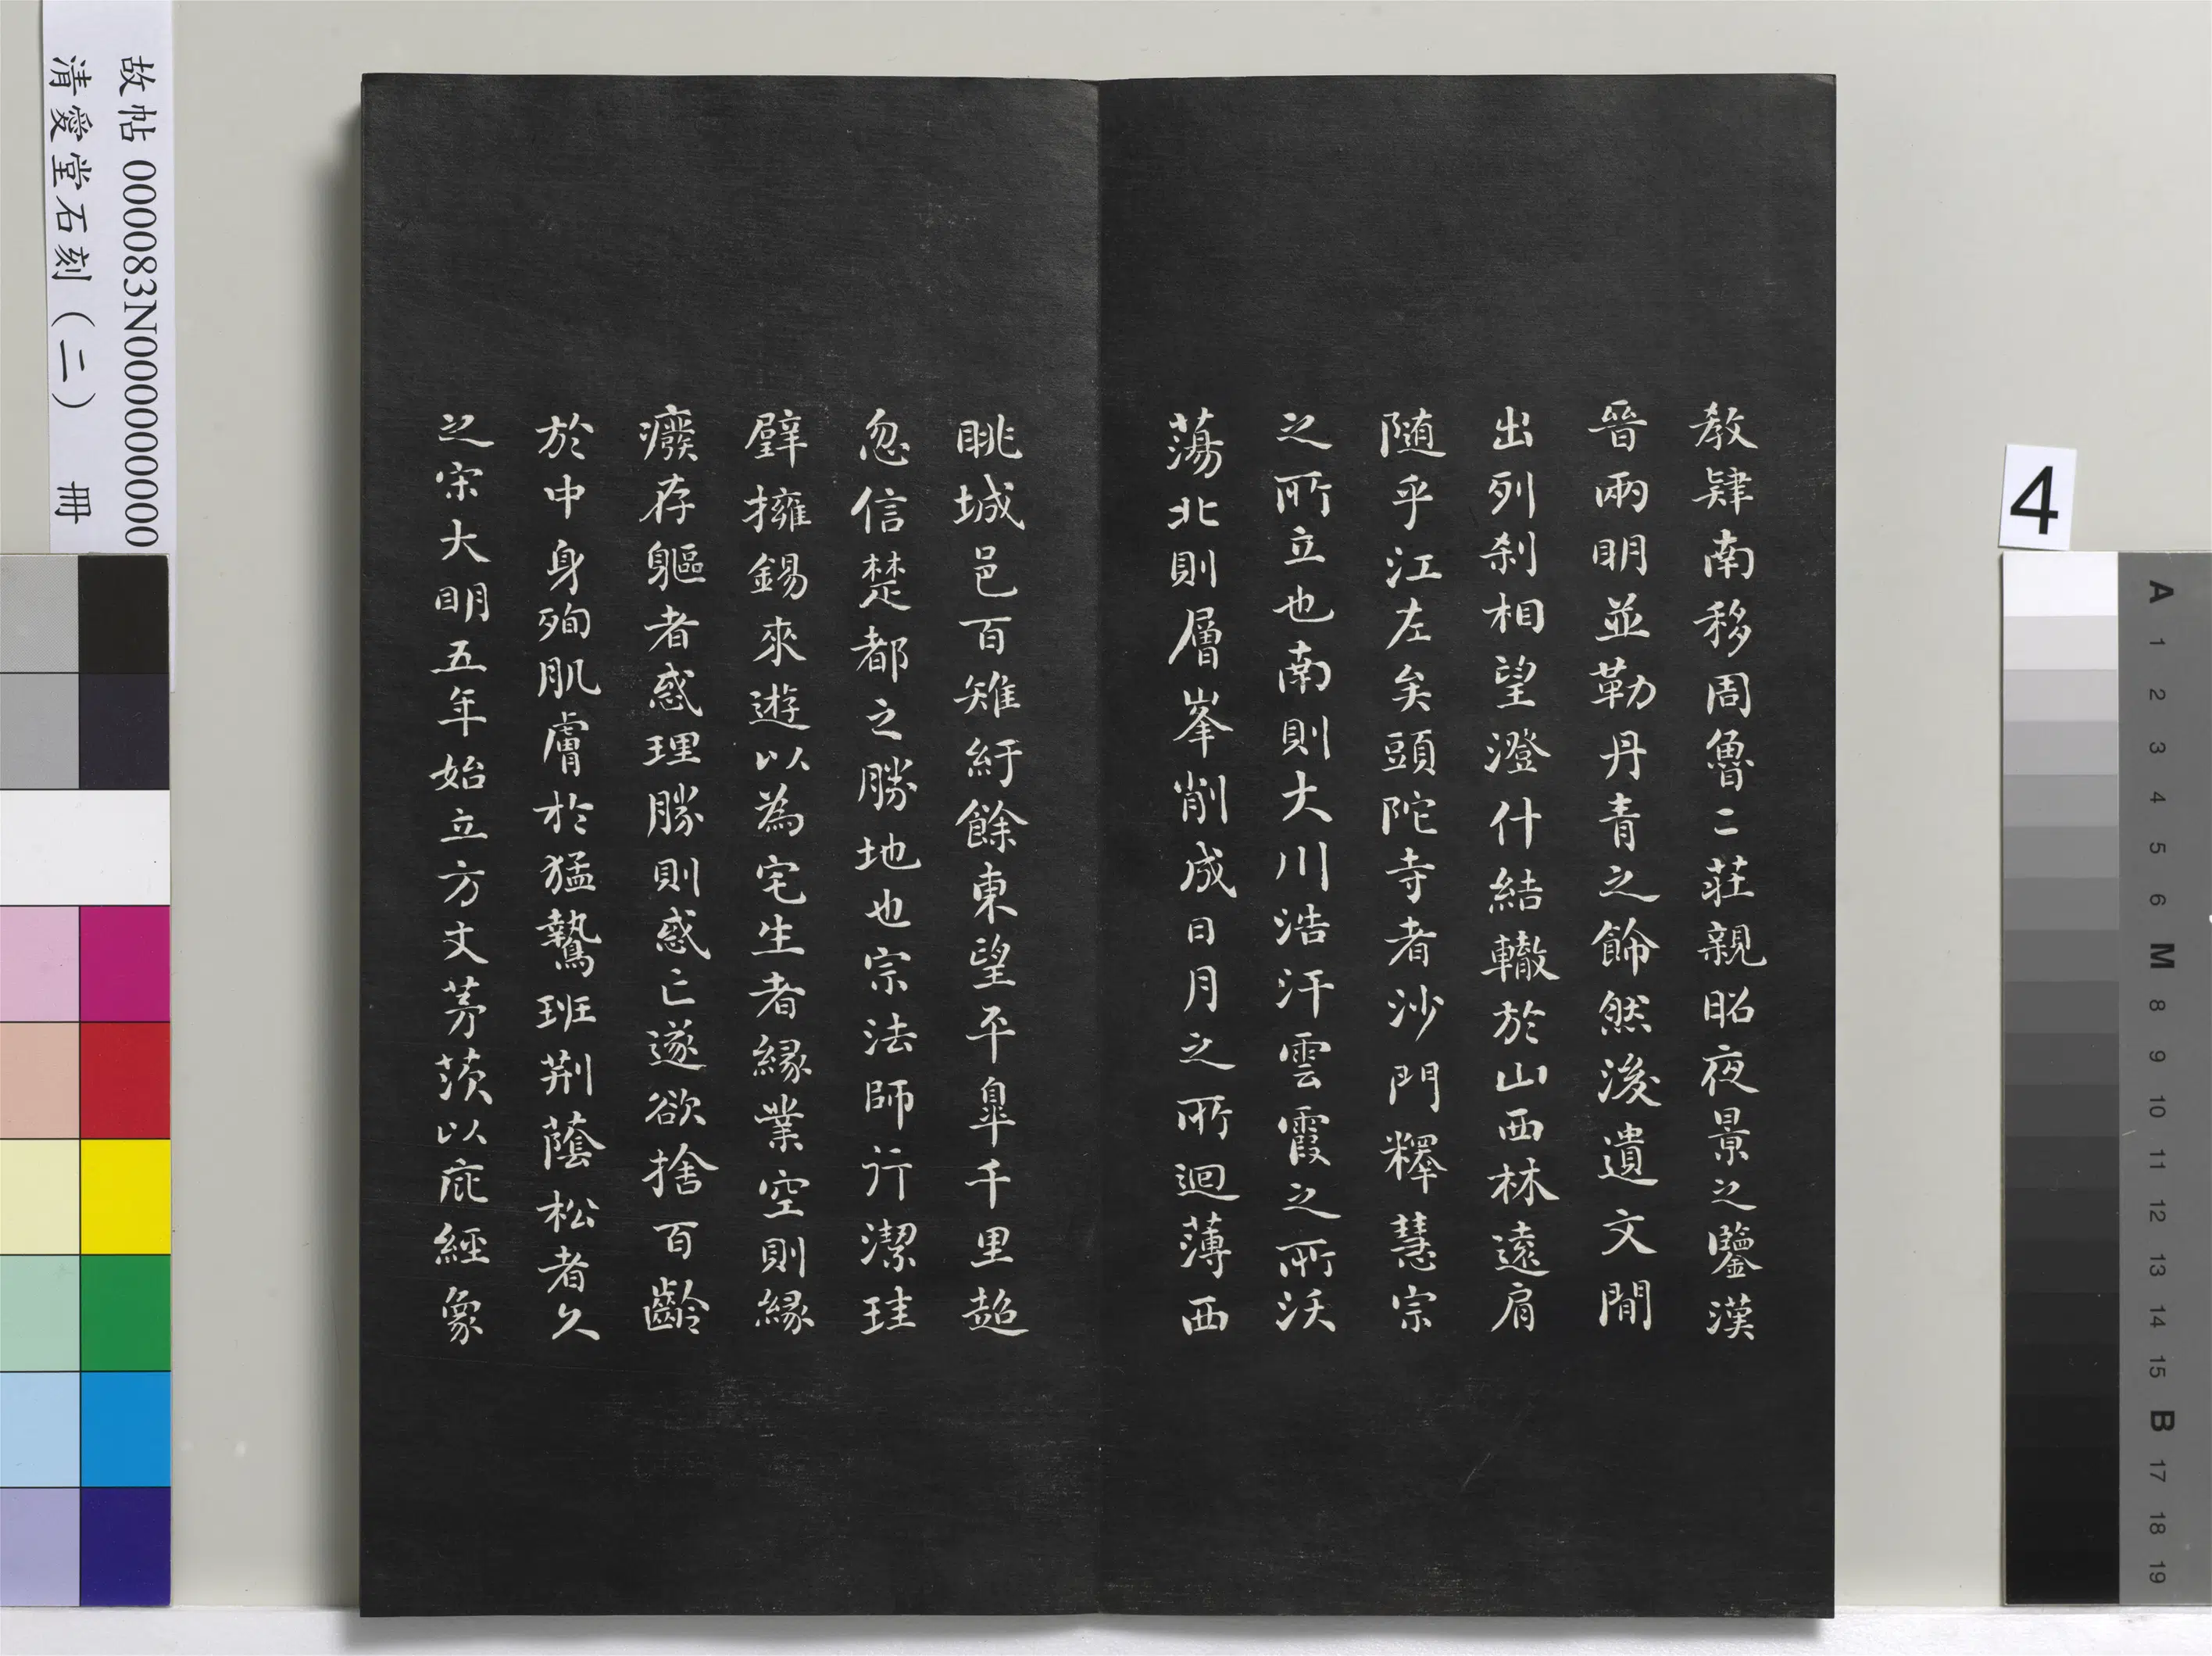 教肄南移周魯二莊親昭夜景之鑒漢
晉兩明並勒丹青之飾然後遺文間
出列刹相望澄什結轍於山西林遠肩
随乎江左矣頭陀寺者沙門釋慧宗
之所立也南則大川浩汗雲霞之所沃
蕩北則層峯削成日月之所迴薄西
眺城邑百雉紆餘東望平皐千里超
忽信楚都之勝地也宗法師行潔珪
璧擁錫來遊以為宅生者緣業空則緣
癈存軀者惑理勝則惑亡遂欲捨百齡
於中身殉肌膚於猛鷙班荆蔭松者久
之宋大明五年始立方丈茅茨以庇經象
故帖 000083N000000000
清愛堂石刻(二) 冊
4
A 1 2 3 4 5 6 M 8 9 10 11 12 13 14 15 B 17 18 19